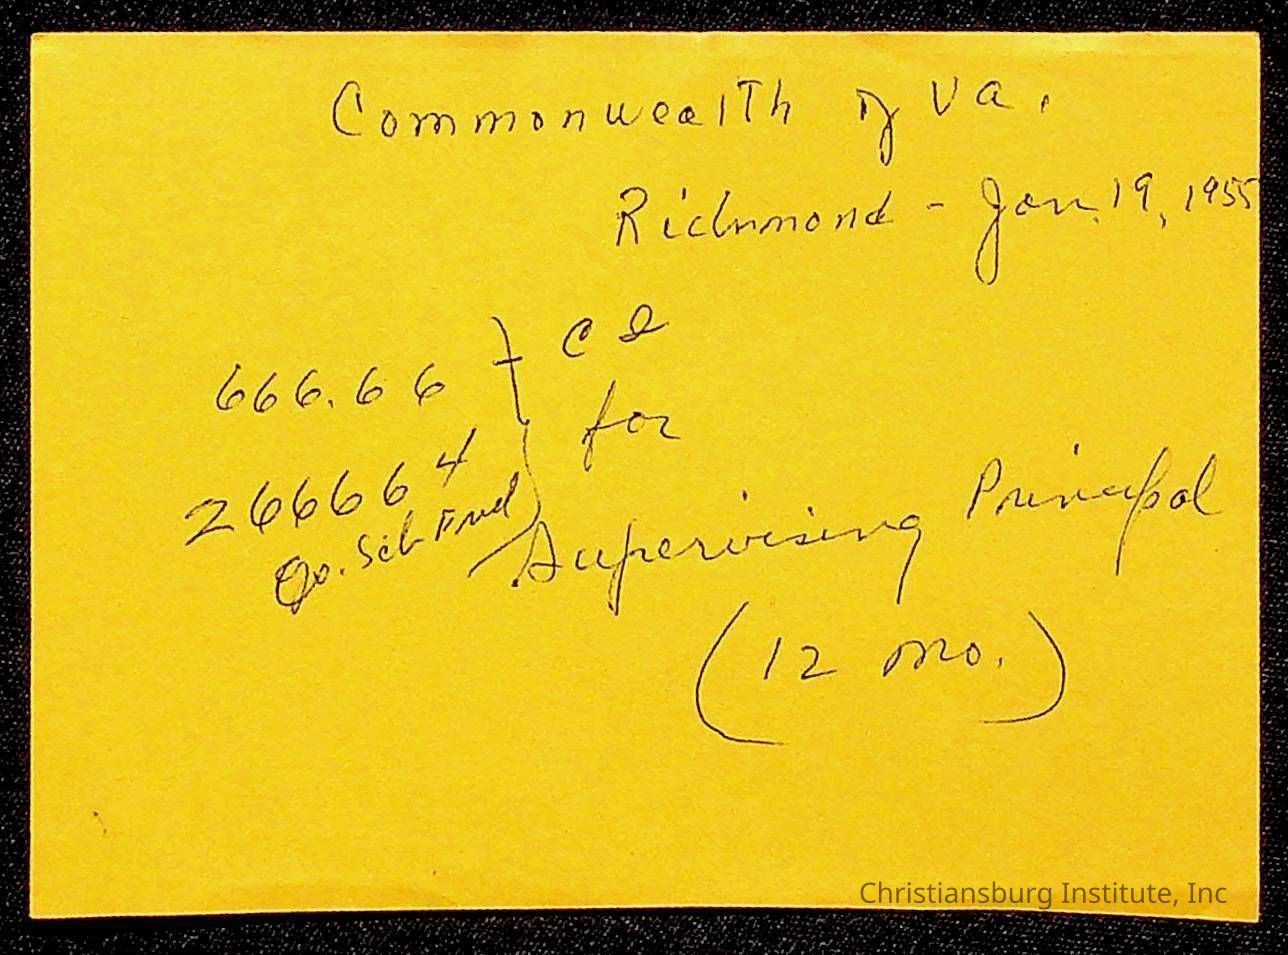 Commonwealth of Va.
Richmond - Jan. 19, 1955
666.66 } C I
for
266664
Sch Fund
Supervising Principal
(12 mo.)
Christiansburg Institute, Inc